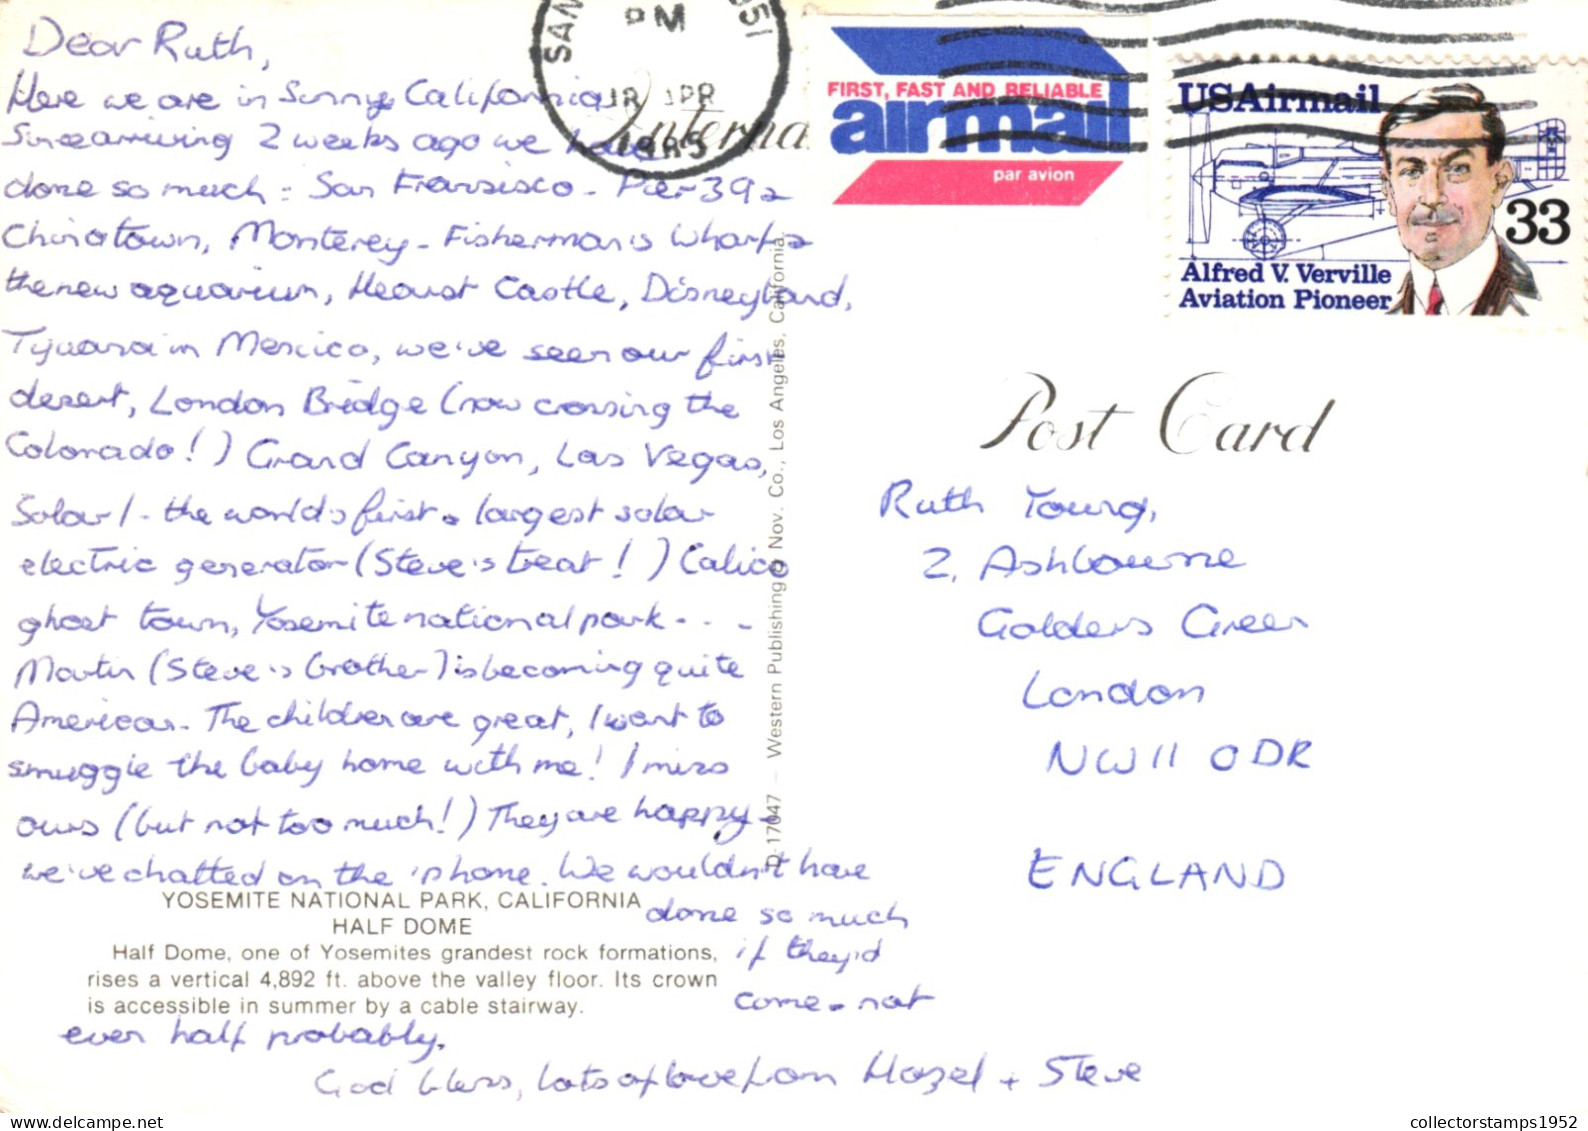 Dear Ruth,
Here we are in Sunny California
Since arriving 2 weeks ago we have
done so much: San Fransisco - Pier 39 &
Chinatown, Monterey - Fisherman's Wharf &
the new aquarium, Hearst Castle, Disneyland,
Tijuana in Mexico, we've seen our first
desert, London Bridge (now crossing the
Colorado!) Grand Canyon, Las Vegas,
Solar 1 - the world's first & largest solar
electric generator (Steve's treat!) Calico
ghost town, Yosemite national park - - -
Martin (Steve's brother) is becoming quite
American. The children are great, I want to
smuggle the baby home with me! I miss
ours (but not too much!) They are happy -
we've chatted on the 'phone. We wouldn't have
done so much
if they'd
come - not
even half probably.
God bless, lots of love from Hazel + Steve
YOSEMITE NATIONAL PARK, CALIFORNIA
HALF DOME
Half Dome, one of Yosemites grandest rock formations,
rises a vertical 4,892 ft. above the valley floor. Its crown
is accessible in summer by a cable stairway.
D-17047 – Western Publishing © Nov. Co., Los Angeles, California.
SAN 951
PM
APR
1985
Interna
FIRST, FAST AND RELIABLE
airmail
par avion
USAirmail
33
Alfred V. Verville
Aviation Pioneer
Post Card
Ruth Young,
2, Ashbourne
Golders Green
London
NW11 0DR
ENGLAND
collectorstamps1952